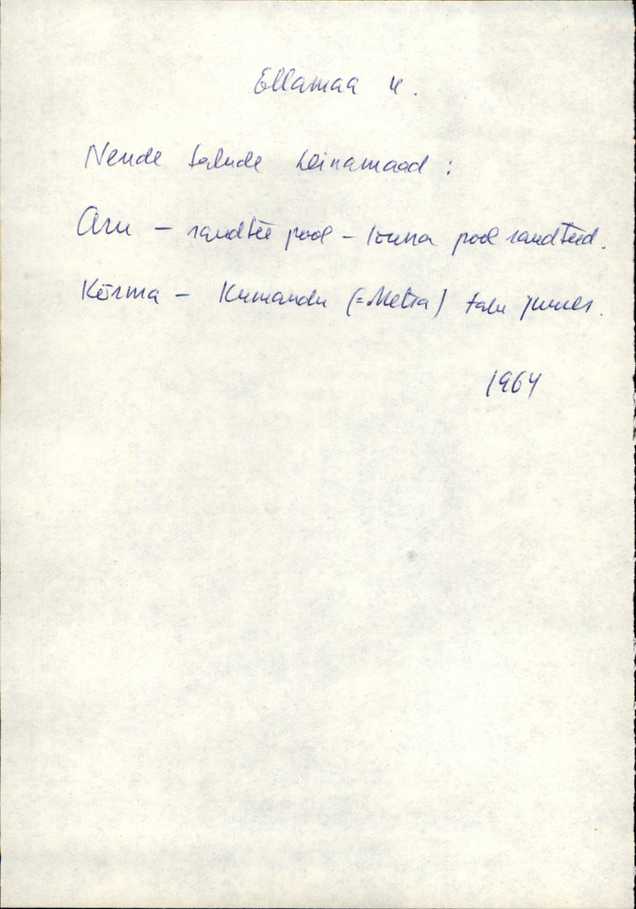 Ellamaa k.
Nende talude heinamaad :
Aru – raudtee pool – lõuna pool raudteed.
Kõrma – Kumandu (=Metsa) talu juures.
1964